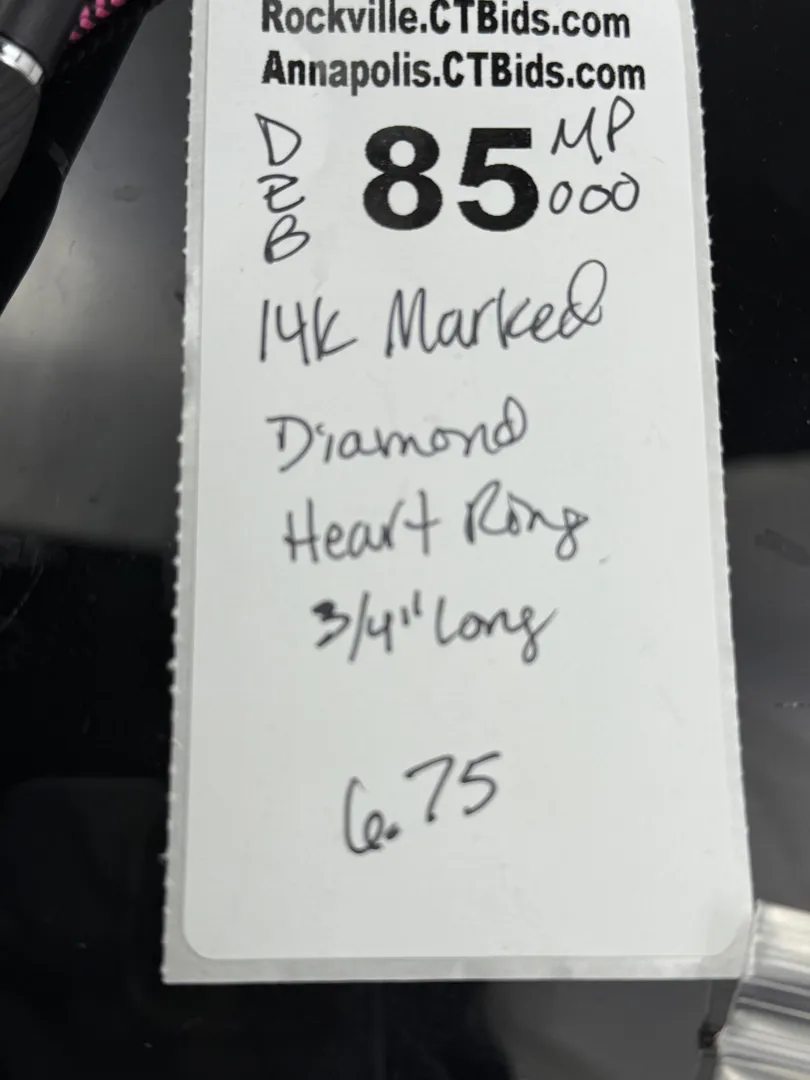 Rockville.CTBids.com
Annapolis.CTBids.com
DEB 85 MP
000
14K Marked
Diamond
Heart Ring
3/4" Long
6.75